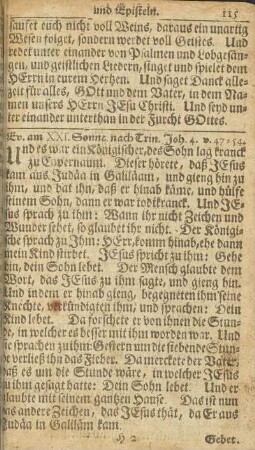 und Episteln. 115
sauffet euch nicht voll Weins, daraus ein unartig
Wesen folget, sondern werdet voll Geistes. Und
redet unter einander von Psalmen und Lobgesän-
gen, und geistlichen Liedern, singet und spielet dem
HErrn in eurem Hertzen. Und saget Danck alle-
zeit für alles, GOtt und dem Vater, in dem Na-
men unsers HErrn JEsu Christi. Und seyd un-
ter einander unterthan in der Furcht GOttes.
Ev. am XXI. Sonnt. nach Trin. Joh. 4. v. 47-54.
Und es war ein Königischer, des Sohn lag kranck
zu Capernaum. Dieser hörete, daß JEsus
kam aus Judäa in Galiläam, und gieng hin zu
ihm, und bat ihn, daß er hinab käme, und hülfe
seinem Sohn, dann er war todtkranck. Und JE-
sus sprach zu ihm: Wann ihr nicht Zeichen und
Wunder sehet, so glaubet ihr nicht. Der Königi-
sche sprach zu Jhm: HErr, komm hinab, ehe dann
mein Kind stirbet. JEsus spricht zu ihm: Gehe
hin, dein Sohn lebet. Der Mensch glaubte dem
Wort, das JEsus zu ihm sagte, und gieng hin.
Und indem er hinab gieng, begegneten ihm seine
Knechte, verkündigten ihm, und sprachen: Dein
Kind lebet. Da forschete er von ihnen die Stun-
de, in welcher es besser mit ihm worden war. Und
sie sprachen zu ihm: Gestern um die siebende Stun-
de verließ ihn das Fieber. Da merckete der Vater,
daß es um die Stunde wäre, in welcher JEsus
zu ihm gesagt hatte: Dein Sohn lebet. Und er
glaubte mit seinem gantzen Hause. Das ist nun
das andere Zeichen, das JEsus thät, da Er aus
Judäa in Galiläm kam.
H 2 Gebet.